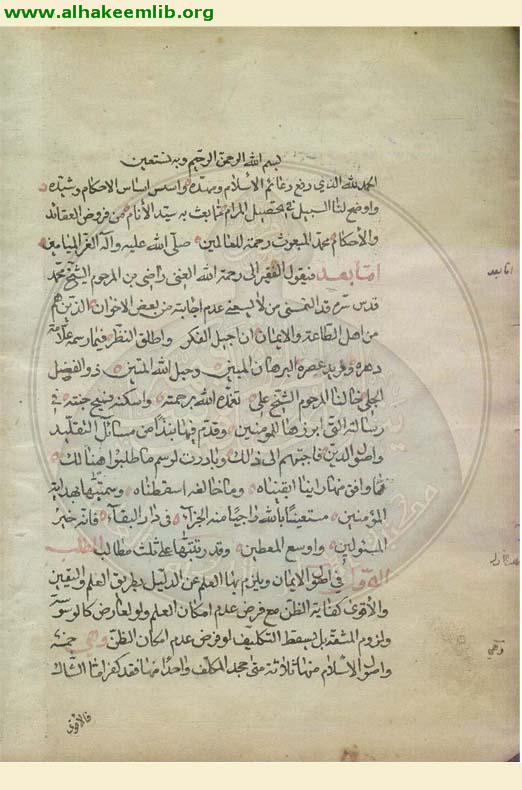 www.alhakeemlib.org
بسم الله الرحمن الرحيم وبه نستعين
الحمد لله الذي رفع دعائم الأسلام ومهده واسس اساس الاحكام وشيده
واوضح لنا السبيل في تحصيل المرام مما بعث به سيد الأنام من فروض العقائد
والأحكام محمد المبعوث رحمة للعالمين صلى الله عليه وآله الغر الميامين
اما بعد فيقول الفقير الى رحمة الله الغني راضي بن المرحوم الشيخ محمد
قدس سره قد التمسني من لا يسعني عدم اجابته من بعض الاخوان الذين هم
من اهل الطاعة والايمان ان اجيل الفكر واطلق النظر فيما رسمه علامة
دهره وفريد عصره البرهان المبين وحبل الله المتين ذو الفضل
الجلي خالنا المرحوم الشيخ علي تغمده الله برحمته واسكنه فسيح جنته في
رسالته التي ابرزها للمؤمنين وقدم فيها نبذا من مسائل التقليد
واصول الدين فاجبتهم الى ذلك وبادرت لرسم ما طلبوا هنالك
فما وافق منها رأينا ابقيناه وما خالفه اسقطناه وسميتها بهداية
المؤمنين مستعينا بالله راجيا منه الجزاء في دار البقاء فانه خير
المسئولين واوسع المعطين وقد رتبتها على ثلث مطالب المطلب
الأول في اصول الايمان ويلزم بها العلم عن الدليل بطريق العلم واليقين
والأقوى كفاية الظن مع فرض عدم امكان العلم ولو لعارض كالوسوسة
ولزوم المشقة بل يسقط التكليف لو فرض عدم امكان الظن وهي خمسة
واصول الاسلام منها ثلاثة متى جحد المكلف واحدا منها فقد كفر اما الشاك
فالاقوى
اما بعد
وهي